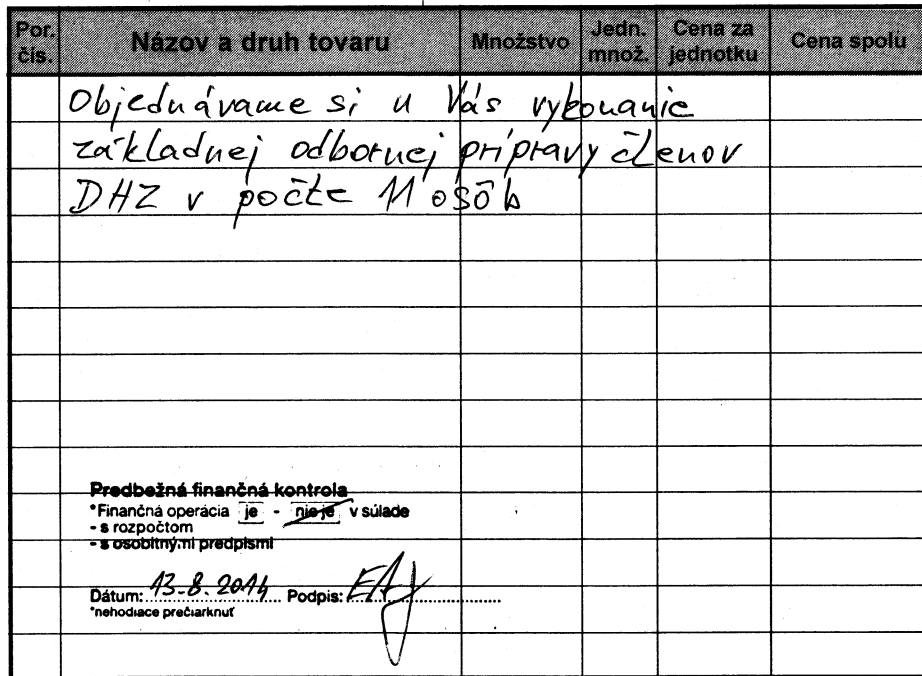 Por. čís. Názov a druh tovaru Množstvo Jedn. množ. Cena za jednotku Cena spolu
Objednávame si u Vás vykonanie
základnej odbornej prípravy členov
DHZ v počte 11 osôb
Predbežná finančná kontrola
*Finančná operácia je - nie je v súlade
- s rozpočtom
- s osobitnými predpismi
Dátum: 13.8.2014 Podpis:
*nehodiace prečiarknuť